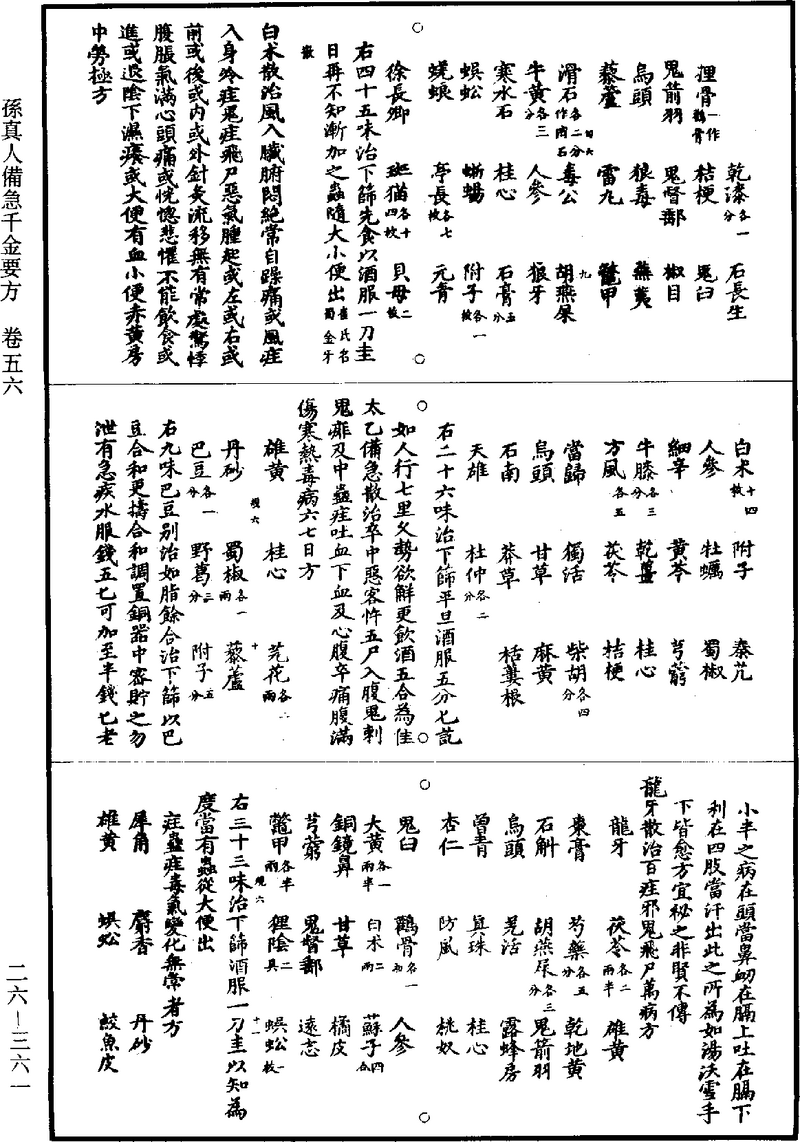 孫真人備急千金要方 卷五六
乾漆各一分 石長生
狸骨一作鸛骨 桔梗 鬼臼
鬼箭羽 鬼督郵 椒目
烏頭 狼毒 蕪荑
藜蘆 雷丸 鼈甲
滑石各二分作肉石 毒公 胡燕屎
牛黃各三分 人參 狼牙
寒水石 桂心 石膏五分
蜈蚣 蜥蜴 附子各一枚
蜣蜋 亭長各七枚 元青
徐長卿 斑猫各十四枚 貝母二枚
右四十五味治下篩先食以酒服一刀圭
日再不知漸加之蟲隨大小便出崔氏名蜀金牙
散
白朮散治風入臟腑悶絕常自躁痛或風疰
入身冷疰鬼疰飛尸惡氣腫起或左或右或
前或後或內或外針灸流移無有常處驚悸
腹脹氣滿心頭痛或恍惚悲懼不能飲食或
進或退陰下濕癢或大便有血小便赤黃房
中勞極方
白朮十四枚 附子 秦艽
人參 牡蠣 蜀椒
細辛 黃芩 芎藭
牛膝各三分 乾薑 桂心
方風各五 茯苓 桔梗
當歸 獨活 柴胡各四分
烏頭 甘草 麻黃
石南 莽草 栝蔞根
天雄 杜仲各二分
右二十六味治下篩平旦酒服五分匕訖
如人行七里久勢欲解更飲酒五合為佳
太乙備急散治卒中惡客忤五尸入腹鬼刺
鬼痱及中蠱疰吐血下血及心腹卒痛腹滿
傷寒熱毒病六七日方
雄黃 桂心 芫花各二兩
丹砂 蜀椒各一兩 藜蘆
巴豆各一分 野葛三分 附子五分
右九味巴豆別治如脂餘合治下篩以巴
豆合和更擣合和調置銅器中密貯之勿
泄有急疾水服錢五匕可加至半錢匕老
小半之病在頭當鼻衂在膈上吐在膈下
利在四肢當汗出此之所為如湯沃雪手
下皆愈方宜秘之非賢不傳
龍牙散治百疰邪鬼飛尸萬病方
龍牙 茯苓各二兩半 雄黃
棗膏 芍藥各五分 乾地黃
石斛 胡燕屎各三分 鬼箭羽
烏頭 羌活 露蜂房
曾青 真珠 桂心
杏仁 防風 桃奴
鬼臼 鸛骨各一 人參
大黃各一兩半 白朮二兩 蘇子四合
銅鏡鼻 甘草 橘皮
芎藭 鬼督郵 遠志
鼈甲各半兩 狸陰二具 蜈蚣一枚
右三十三味治下篩酒服一刀圭以知為
度當有蟲從大便出
疰蠱疰毒氣變化無常者方
犀角 麝香 丹砂
雄黃 蜈蚣 鮫魚皮
二六—三六一